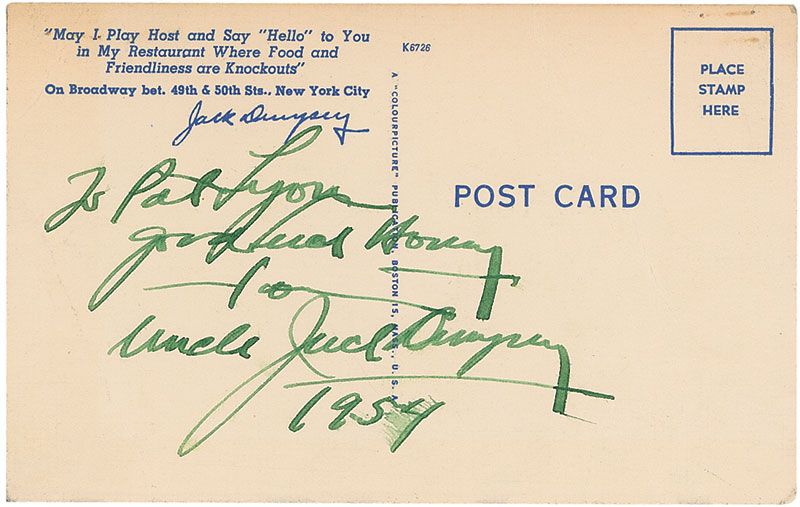 "May I Play Host and Say "Hello" to You
in My Restaurant Where Food and
Friendliness are Knockouts"
On Broadway bet. 49th & 50th Sts., New York City
Jack Dempsey
K6726
A "COLOURPICTURE" PUBLICATION, BOSTON 15, MASS., U.S.A.
PLACE
STAMP
HERE
POST CARD
To Pat Lyons
good luck Honey
from
Uncle Jack Dempsey
1954